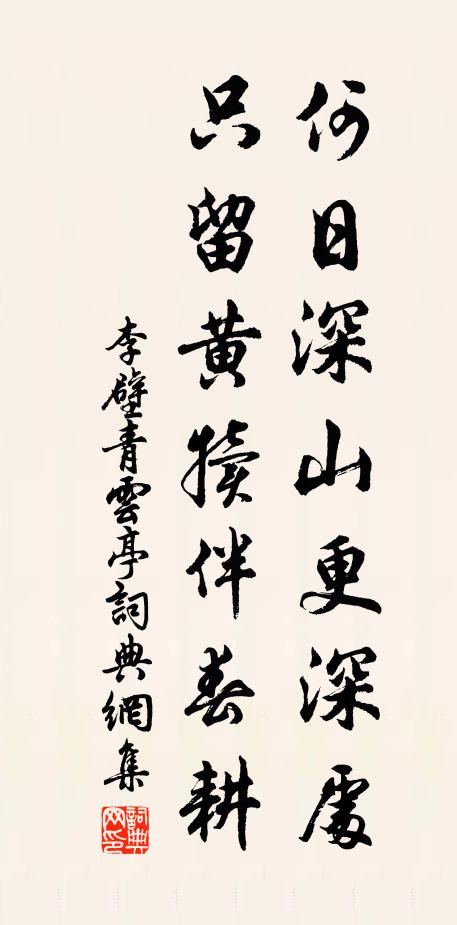 何日深山更深處
只留黃犢伴春耕
李壁青雲亭詞典網集
詞典網印